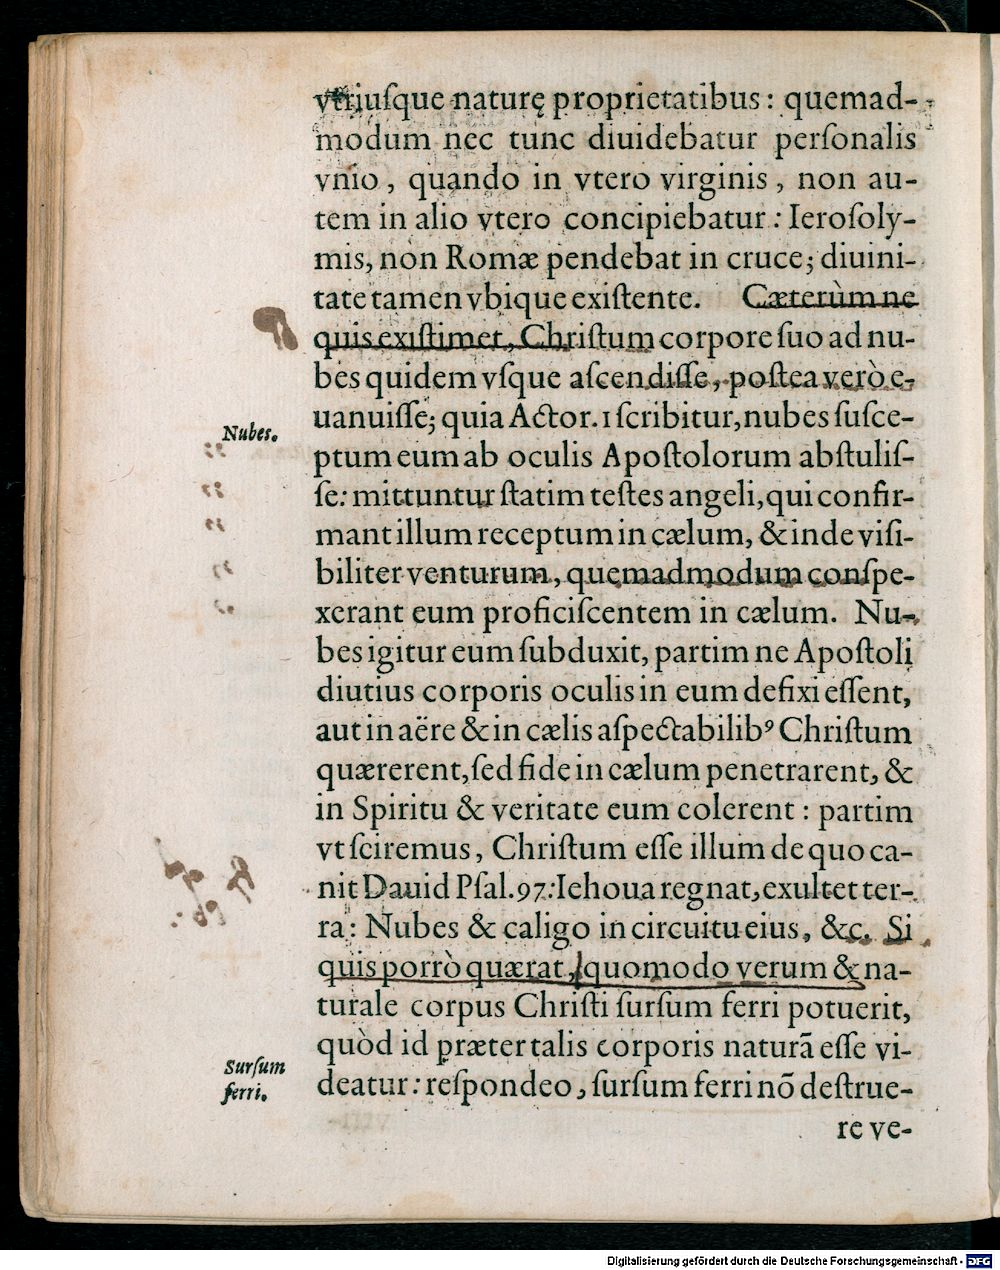 vtriuſque naturę proprietatibus: quemad-
modum nec tunc diuidebatur perſonalis
vnio, quando in vtero virginis, non au-
tem in alio vtero concipiebatur: Ieroſoly-
mis, non Romæ pendebat in cruce; diuini-
tate tamen vbique exiſtente. Cæterùm ne
quis exiſtimet, Chriſtum corpore ſuo ad nu-
bes quidem vſque aſcendiſſe, poſtea verò e-
uanuiſſe; quia Actor. 1 ſcribitur, nubes ſuſce-
Nubes.
ptum eum ab oculis Apoſtolorum abſtuliſ-
ſe: mittuntur ſtatim teſtes angeli, qui confir-
mant illum receptum in cælum, & inde viſi-
biliter venturum, quemadmodum conſpe-
xerant eum proficiſcentem in cælum. Nu-
bes igitur eum ſubduxit, partim ne Apoſtoli
diutius corporis oculis in eum defixi eſſent,
aut in aëre & in cælis aſpectabilibꝰ Chriſtum
quærerent, ſed fide in cælum penetrarent, &
in Spiritu & veritate eum colerent: partim
vt ſciremus, Chriſtum eſſe illum de quo ca-
nit Dauid Pſal. 97: Iehoua regnat, exultet ter-
ra: Nubes & caligo in circuitu eius, &c. Si
quis porrò quærat, quomodo verum & na-
turale corpus Chriſti ſurſum ferri potuerit,
quòd id præter talis corporis naturã eſſe vi-
deatur: reſpondeo, ſurſum ferri nõ deſtrue-
Surſum
ferri.
re ve-
Digitalisierung gefördert durch die Deutsche Forschungsgemeinschaft - DFG